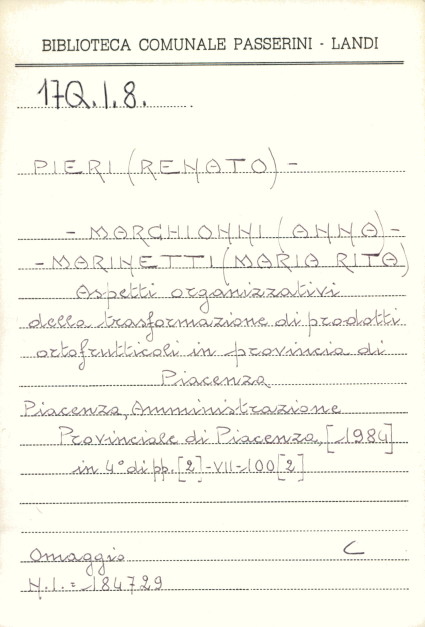 BIBLIOTECA COMUNALE PASSERINI - LANDI
17Q.I.8.
PIERI (RENATO) -
- MARCHIONNI (ANNA) -
- MARINETTI (MARIA RITA)
Aspetti organizzativi
della trasformazione di prodotti
ortofrutticoli in provincia di
Piacenza
Piacenza, Amministrazione
Provinciale di Piacenza, [1984]
in 4° di pp. [2]-VII-100[2]
Omaggio C
N.I. = 184729